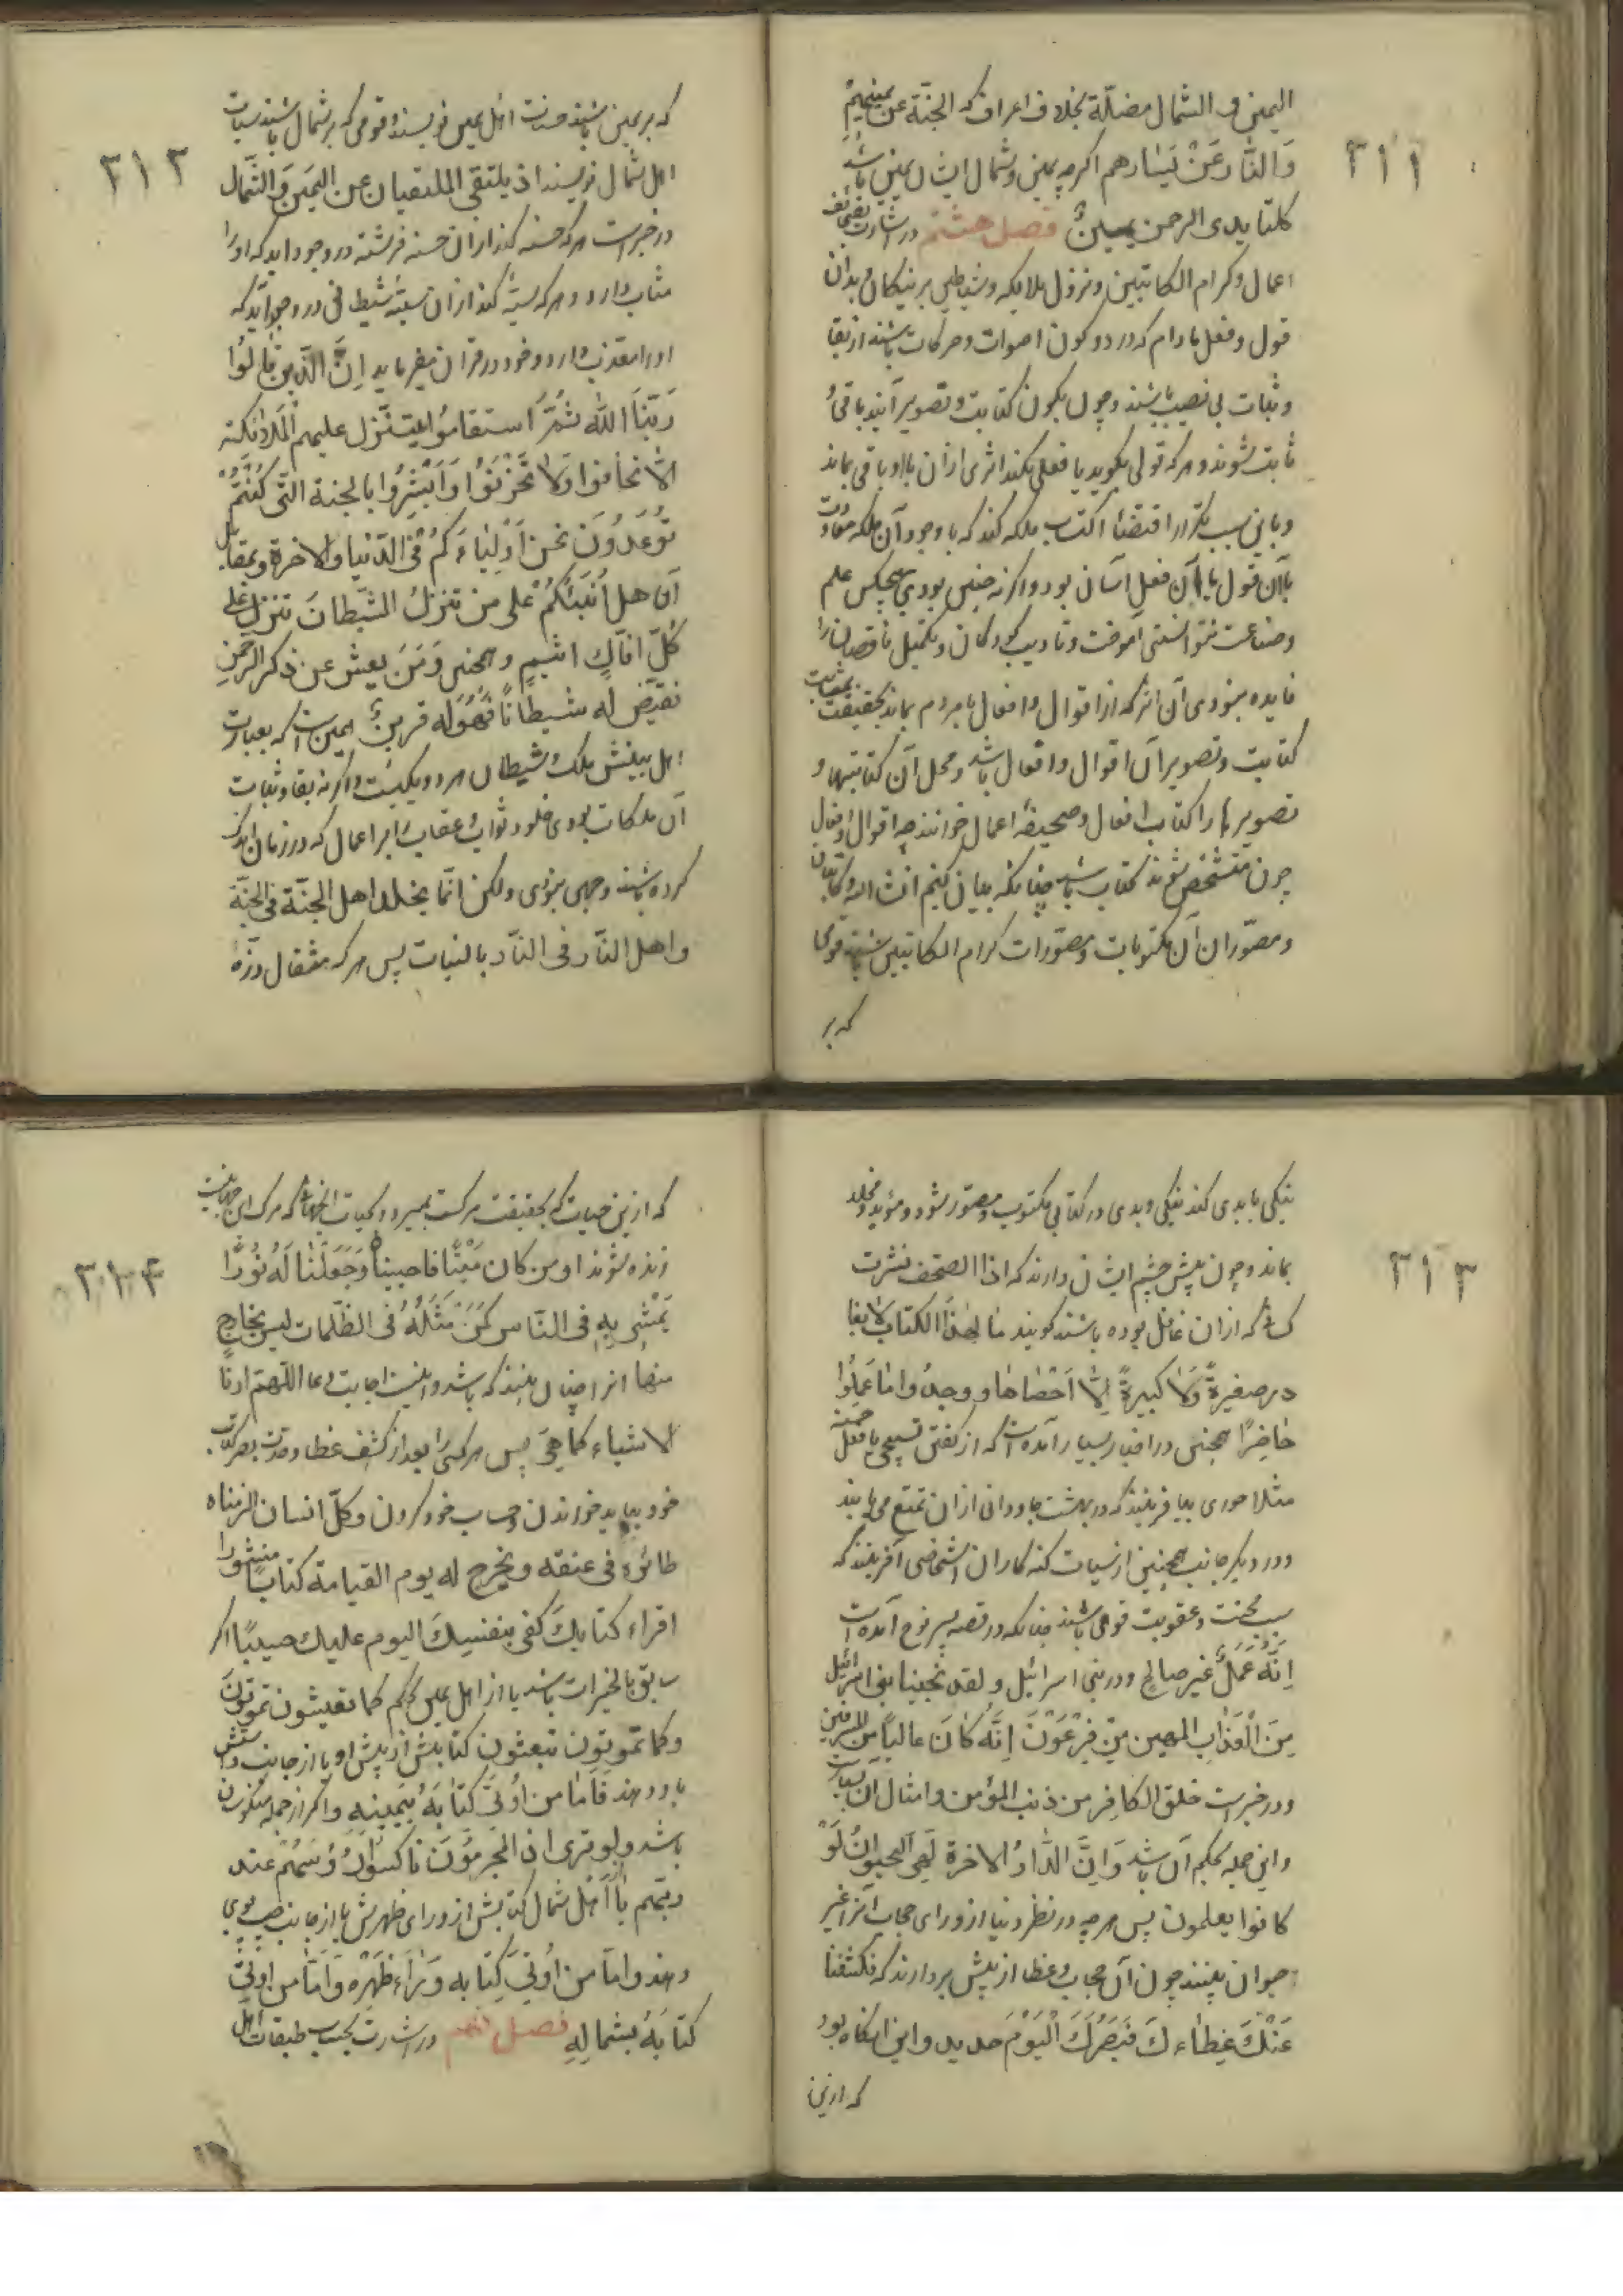 ۳۱۱
اليمين و الشمال مضلّة بخلاف اعراف كه الجنّة عن يمينهم
وَالنّار عَنْ يَسٰارهم اكرچه يمين و شمال ايشان يمين باشد
كلتا يدى الرحمن يمينٌ فصل هشتم در اشارت بصحائف
اعمال و كرام الكاتبين و نزول ملايكه و شياطين بر نيكان و بدان
قول و فعل مادام كه در دو كون اصوات و حركات باشند از بقا
و ثبات بى نصيب باشند و چون بكون كتابت و تصوير آيند باقى و
ثابت شوند و هركه قولى بكويد يا فعلى بكند اثرى از آن با او باقى بماند
و باين سبب تكرار اقتضاء اكتساب ملكه كند كه با وجود آن ملكه معاودت
با آن قول يا با آن فعل آسان بود و اكر نه چنين بودى هيچكس علم
و صناعت نتوانستى آموخت و تاديب كودكان و تكميل ناقصان را
فايده نبودى آن اثر كه از اقوال و افعال با مردم بماند بحقيقت بمثابت
كتابت و تصوير آن اقوال و افعال باشد و محل آن كتابتها و
تصويرها را كتاب افعال و صحيفه اعمال خوانند چه اقوال و افعال
چون متشخص شوند كتاب باشد چنانكه بيان كنيم انشاء الله و كاتبان
و مصوّران آن مكتوبات و مصوّرات كرام الكاتبين باشند قومى
كه بر
۳۱۲
كه بر يمين باشند حسنات اهل يمين نويسند و قومى كه بر شمال باشند سيئات
اهل شمال نويسند اذ يتلقى الملتقيان عن اليمَين وَ الشّمال
در خبر است هركه حسنه كند از آن حسنه فرشته در وجود ايد كه او را
مثاب دارد و هركه سيئه كند از آن سيئه شيطانى در وجود آيد كه
او را معذب دارد و خود در قران ميفرمايد اِنَّ الَّذين قٰالوُا
رَبّنَا اللّه ثمُّ اَستقاموُا تتنّزل عليهم الملائكة
الاّ تخافوا وَلٰا تَحْزَنوُا وَ اَبْشِرُوا بالجنة التّى كُنْتُمْ
توُعَدُونَ نحن اَوْلِيٰاءَكُمْ فى الدّنيا و الاخرة و بمقابل
آن هل اُنَبئكُمْ على من تنزلُ الشيّطان تنزل على
كُلِّ افّاكٍ اثيمٍ و همچنين وَمَنَ يعش عن ذكر الرّحمٰنِ
نقيّض له شيطاناً فَهُوَ له قرينٌ همين است كه بعبارت
اهل بينش ملك و شيطان هر دو يكيست و اكر نه بقا و ثبات
آن ملكات بودى خلود ثواب و عقاب را بر اعمال كه در زمان اندك
كرده باشند وجهى نبودى ولكن انّما يخلد اهل الجنّة فى الجنّة
و اهل النّار فى النّار بالنيات پس هركه مثقال ذرّه
۳۱۳
نيكى يا بدى كند نيكى و بدى در كتابى مكتوب و مصوّر شود و مؤبد و مخلد
بماند و چون پيش چشم ايشان دارند كه اذا الصحف نشرت
كسانى كه از ان غافل بوده باشند كويند مٰا لهٰذَا الكتابِ لا يغا
در صغيرةً وَلٰا كبيرةً اِلاّ اَحْصٰاها و وجدوُا مٰا عَمِلُوا
حٰاضِرًا همچنين در اخبار بسيار آمده است كه از كفتن تسبيحى يا فعل حسنه
مثلا حورى بيافرينند كه در بهشت جاودانى از ان تمتع مى يابند
و در ديكر جانب همچنين از سيئات كنه كاران اشخاصى آفرينند كه
سبب محنت و عقوبت قومى باشند چنانكه در قصه پسر نوح آمده است
اِنَّهُ عَمَلٌ غير صالح و در بنى اسرائيل و لقد نجينا بنى اسرائيل
مِنَ الْعَذٰابِ المهين مِنْ فِرْعَوْنَ اِنَّهُ كٰانَ عالياً مِنَ المسرفين
و در خبر است خلق الكافِر من ذنب المؤمن و امثال آن بسيار است
و اين جمله بحكم آن باشد وَاِنَّ الدّٰارُ الاخرة لَهِىَ اَلحيوانُ لَوْ
كانوا يعلمون پس هرچه در نظر دنيا از وراى حجاب آنرا غير
حيوان بينند چون آن حجاب و غطا از پيش بردارند كه فكشفنا
عَنْكَ غِطٰاءكَ فَبَصَرُكَ الْيَوْمَ حديد و اين انكاه بود
كه ازين
۳۱۴
كه ازين حيات كه بحقيقت مركست بميرد و بحيات انجهانى كه مرك اين جهانيست
زنده شوند او من كان مَيْتًا فاحييناه وَجَعَلْنٰا لَهُ نوُرًا
يَمْشىِ بِهِ فى النّاسِ كَمَنْ مَثَلُهُ فى الظلّمات ليس بخٰارج
منها انرا چنان بينند كه باشد و اينست اجابت دعا اللّهم ارنا
الاشياء كما هِىَ پس هركسى را بعد از كشف غطا و حدت بصر كتاب
خود ببايد خواندن و حساب خود كردن و كلّ انسان الزمناه
طائره فى عنقه و نخرج له يوم القيامة كتابًا منشورا
اقراء كتابكَ كفى بنفسِكَ اليوم عليك حسيبًا اكر
سابق بالخيرات باشد يا از اهل يمين بحكم كما تعيشون تموتونَ
و كما تموتون تبعثون كتابش از پيش او يا از جانب راستش
باو دهند فَاَمّا من اُوتىَ كتٰابَهُ بيَمينِهِ و اكر از جمله منكوسان
باشد و لو ترى اذ المجرِمُونَ ناكسوُا رُؤسَهُمْ عند
ربّهم يا از اَهْل شمال كتابش از وراى ظهرش يا از جانب چپ بوى
دهند و امّا من اُوتىَ كِتابه وَرٰاءَ ظَهْرِه وَ اَمّا من اوُتىَ
كتابَهُ بشمالِهِ فصل نهم در اشارت بحساب طبقات اهل